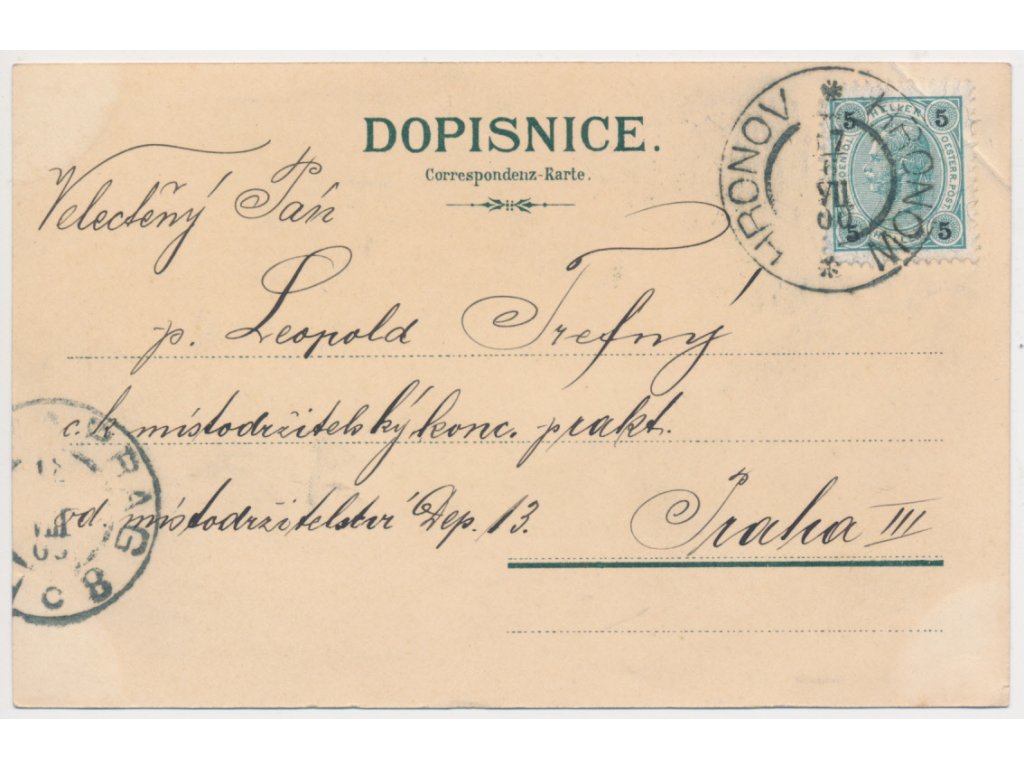 DOPISNICE.
Correspondenz-Karte.
Velectěný Pán
p. Leopold Trefný
c. k. místodržitelský konc. prakt.
od. místodržitelství Dep. 13.
Praha III
HRONOV
HRONOW
VII
5 HELLER 5
OESTERR. POST
5 5
PRAG
8 c